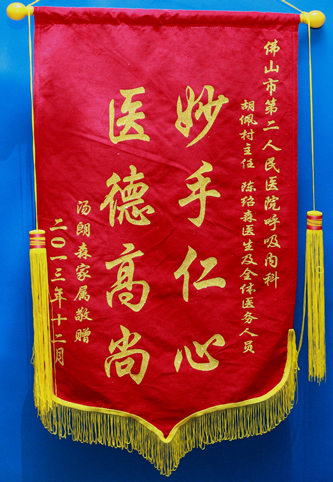 佛山市第二人民医院呼吸内科
胡佩村主任 陈绍森医生及全体医务人员
妙手仁心
医德高尚
汤朗森家属敬赠
二〇一三年十二月